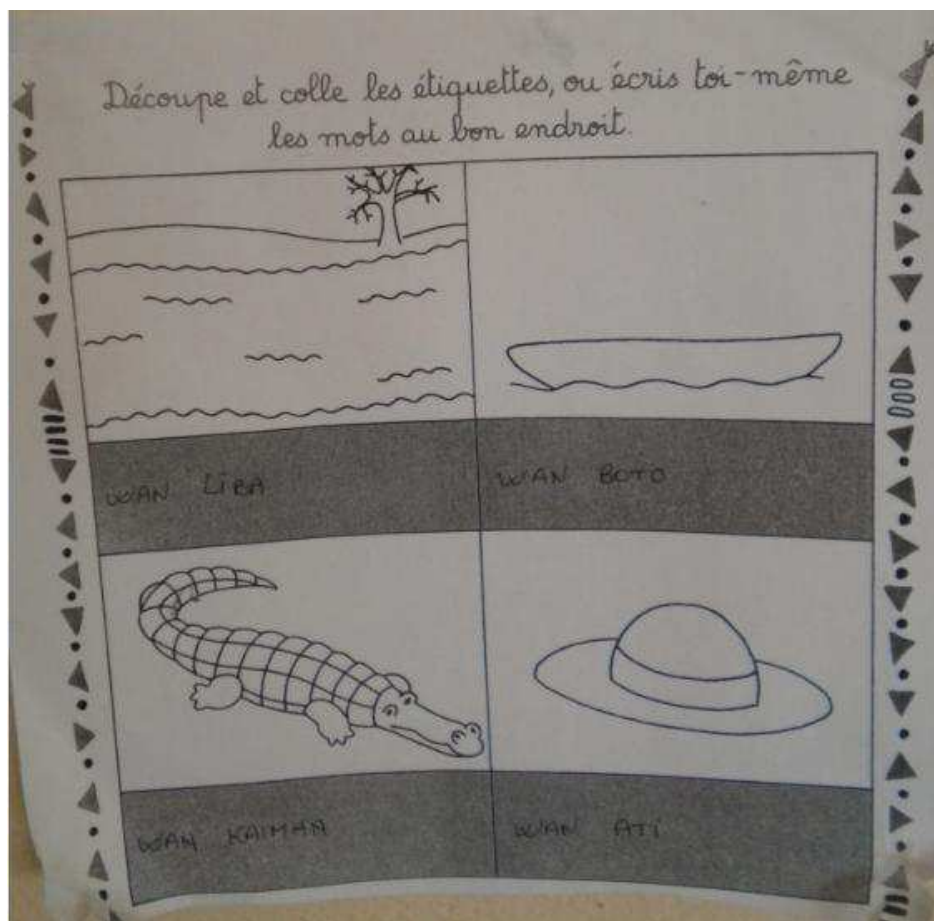 Découpe et colle les étiquettes, ou écris toi-même
les mots au bon endroit.
WAN LIBA
WAN BOTO
WAN KAIMAN
WAN ATI